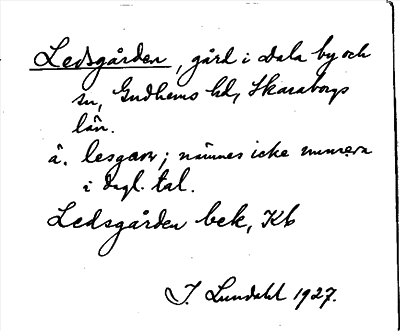 Ledsgården, gård i Dala by och
sn, Gudhems hd, Skaraborgs
län.
ä. lesgaɷr; nämnes icke numera
i dagl. tal.
Ledsgården bek, Kb
J. Lundahl 1927.